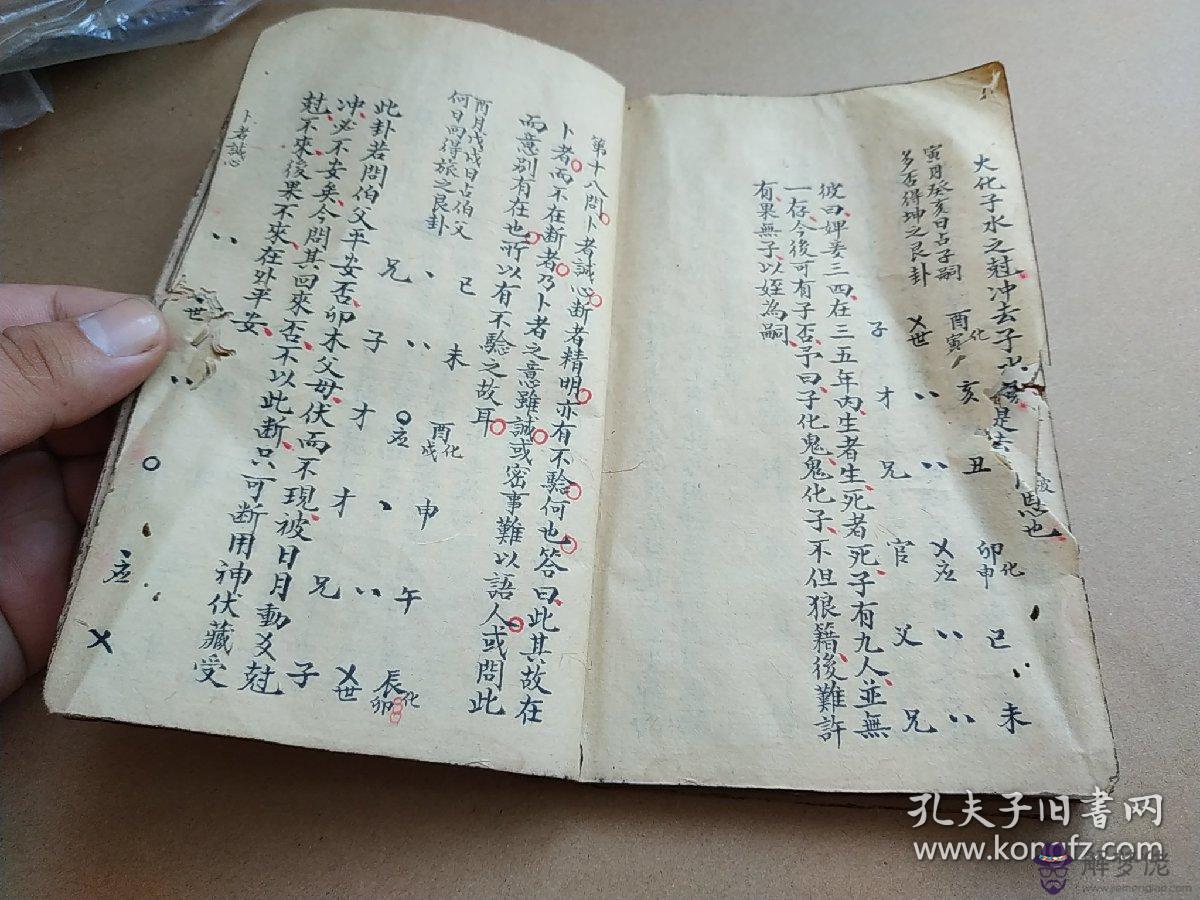 大化子水之尅冲去子水
是去
恩也
寅月癸亥日占子嗣
多否得坤之艮卦
子 父世 酉化寅
才 亥
兄 丑
官 应 卯化申
父 巳
兄 未
彼曰婢妾三四在三五年内生者生死者死子有九人並無
一存今後可有子否予曰子化鬼鬼化子不但狼籍後難許
有果無子以姪為嗣
第十八問卜者誠心断者精明亦有不騐何也答曰此其故在
卜者而不在断者乃卜者之意雖誠或密事難以語人或問此
而意别有在也所以有不騐之故耳
酉月戊戌日占伯父
何日向得旅之艮卦
兄 巳
子 未
才 应 酉化戌
才 申
兄 午
子 世 辰化卯
此卦若問伯父平安否卯木父母伏而不現被日月動爻尅
冲必不安矣今問其回來否不以此断只可断用神伏藏受
尅不來後果不來在外平安
卜者誠心
世
应
孔夫子旧书网
www.kongfz.com
解梦佬
www.jiemenglao.com